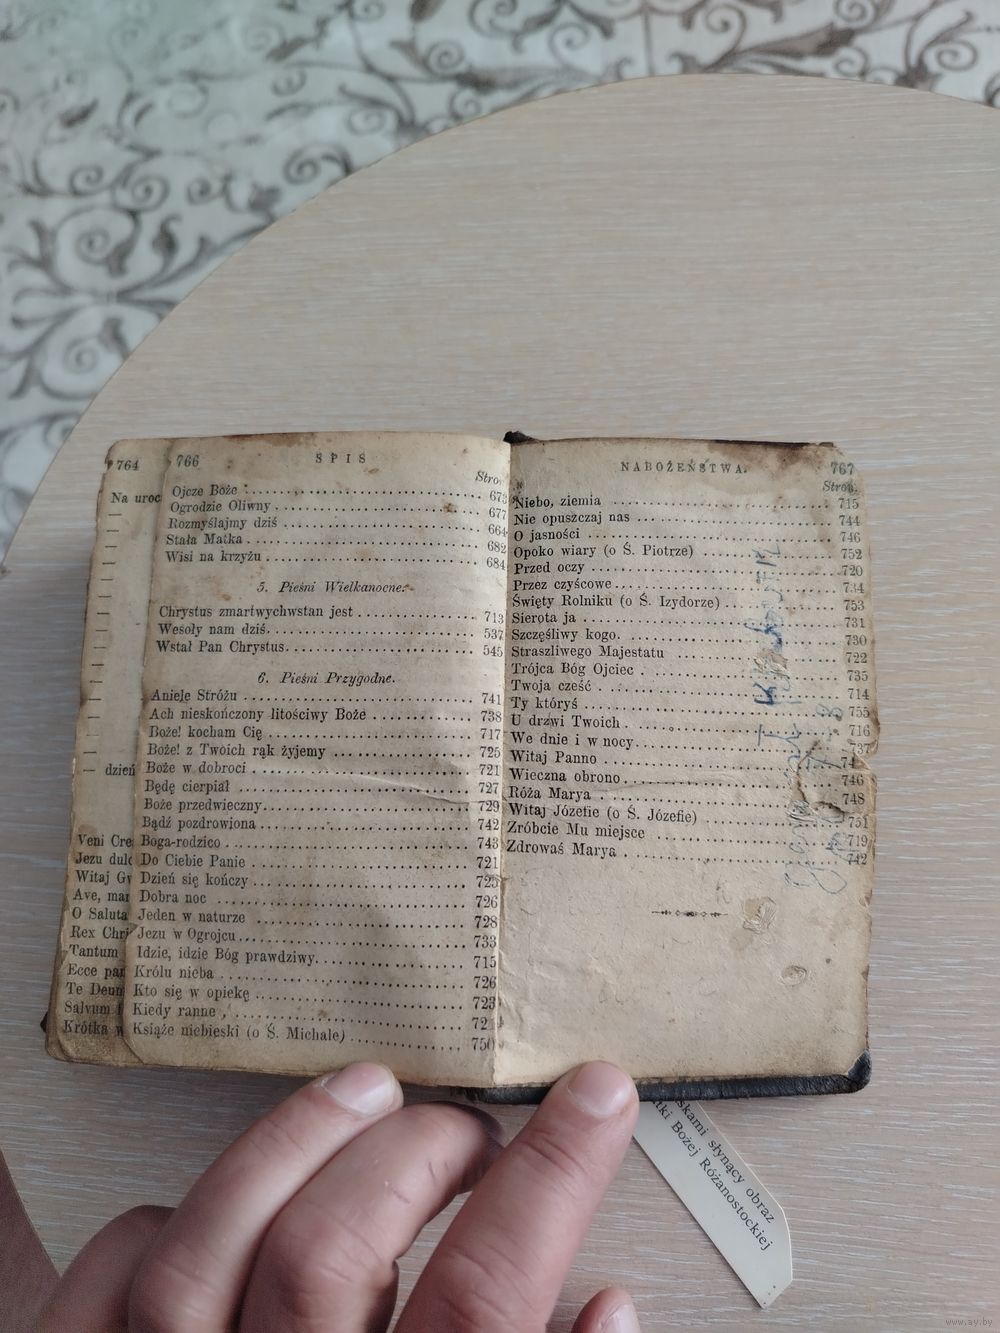 764
Na uroc
— dzień
Veni Cre
Jezu dulc
Witaj Gw
Ave, mar
O Saluta
Rex Chri
Tantum
Ecce pan
Te Deum
Salvum
Krótka w
766 SPIS
Stron.
Ojcze Boże 673
Ogrodzie Oliwny 677
Rozmyślajmy dziś 664
Stała Matka 682
Wisi na krzyżu 684
5. Pieśni Wielkanocne.
Chrystus zmartwychwstan jest 713
Wesoły nam dziś 537
Wstał Pan Chrystus 545
6. Pieśni Przygodne.
Aniele Stróżu 741
Ach nieskończony litościwy Boże 738
Boże! kocham Cię 717
Boże! z Twoich rąk żyjemy 725
Boże w dobroci 721
Będę cierpiał 727
Boże przedwieczny 729
Bądź pozdrowiona 742
Boga-rodzico 743
Do Ciebie Panie 721
Dzień się kończy 725
Dobra noc 726
Jeden w naturze 728
Jezu w Ogrojcu 733
Idzie, idzie Bóg prawdziwy 715
Królu nieba 726
Kto się w opiekę 723
Kiedy ranne 724
Książe niebieski (o Ś. Michale) 750
NABOŻEŃSTWA. 767
Stron.
Niebo, ziemia 715
Nie opuszczaj nas 744
O jasności 746
Opoko wiary (o Ś. Piotrze) 752
Przed oczy 720
Przez czyścowe 734
Święty Rolniku (o Ś. Izydorze) 753
Sierota ja 731
Szczęśliwy kogo. 730
Straszliwego Majestatu 722
Trójca Bóg Ojciec 735
Twoja cześć 714
Ty któryś 755
U drzwi Twoich 716
We dnie i w nocy 737
Witaj Panno
Wieczna obrono 746
Róża Marya 748
Witaj Józefie (o Ś. Józefie) 751
Zróbcie Mu miejsce 719
Zdrowaś Marya 742
skami słynący obraz
tki Bożej Różanostockiej
www.ay.by